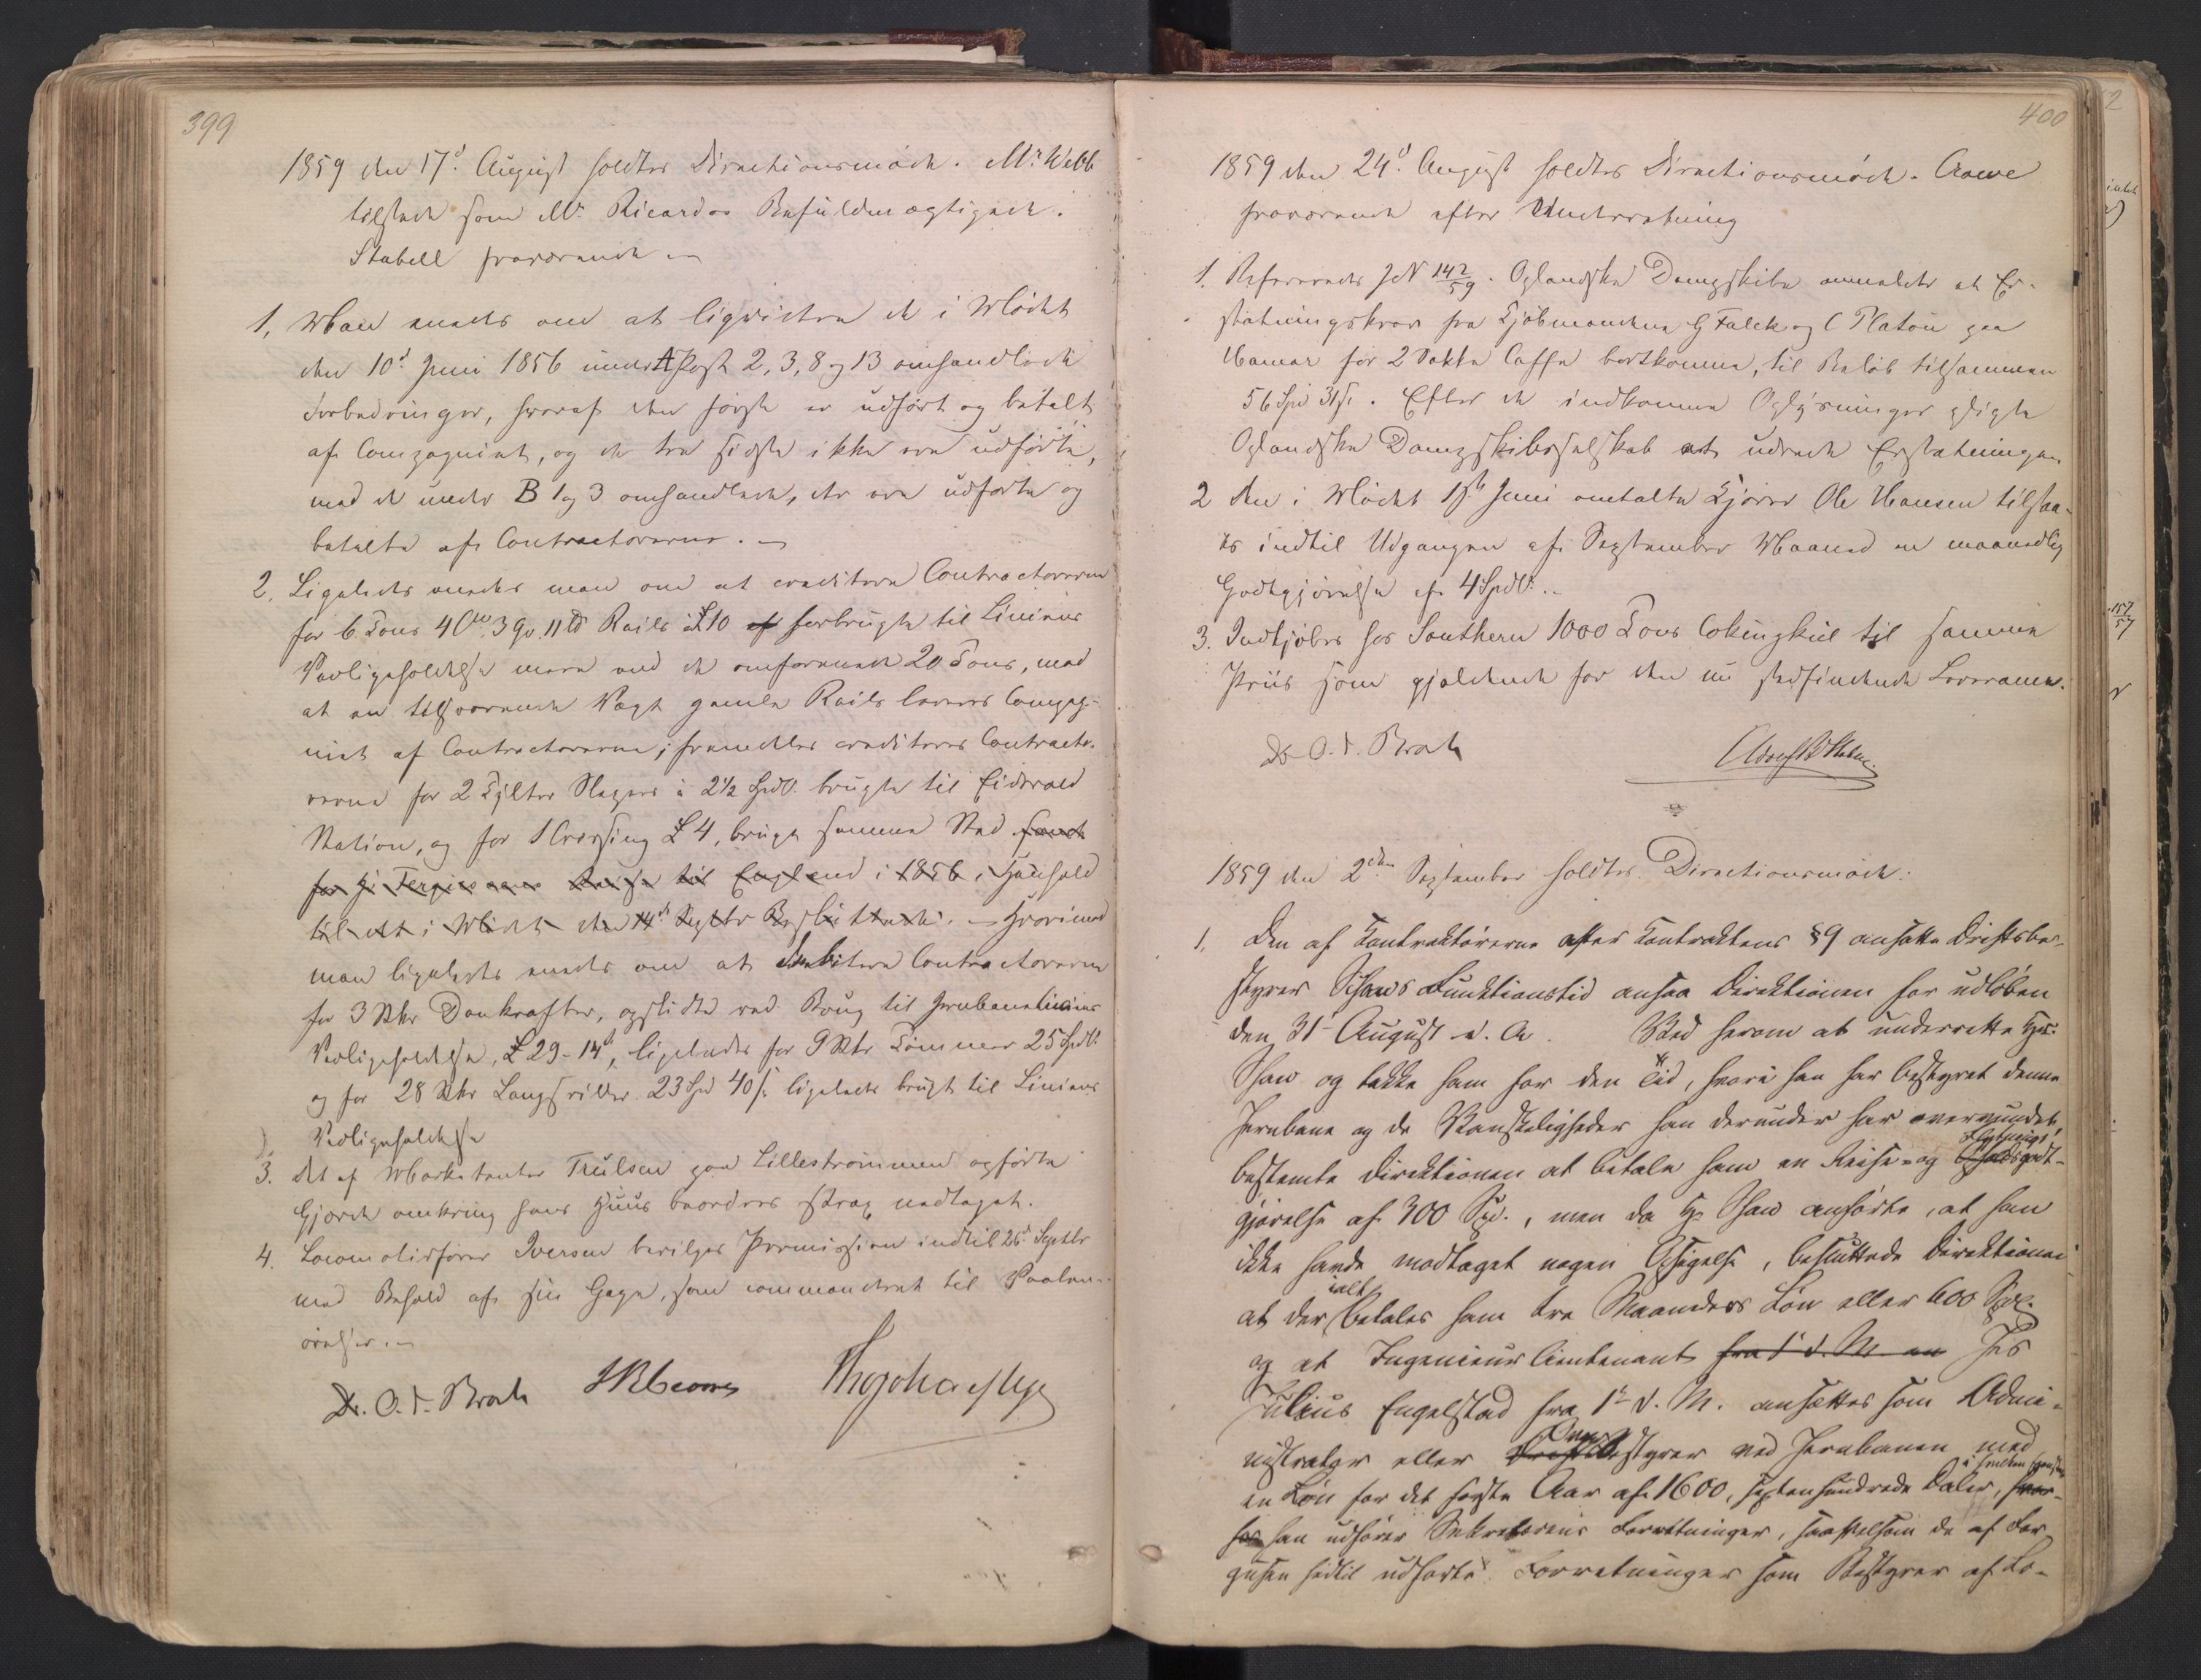 399
1859 den 17d August holdtes Directionsmöde. Mr Webb
tilstede som Mr Ricardos Befuldmægtigede.
Stabell fraværende
1. Man enedes om at liqvidere de i Mödet
den 10d Juni 1856 under A Post 2, 3, 8 og 13 omhandlede
Forbedringer, hvoraf den förste er udfört og betalt
af Compagniet, og de tre sidste ikke ere udförte,
med de under B 1 og 3 omhandlede, der ere udförte og
betalte af Contractorerne.
2. Ligeledes enedes man om at creditere Contractorerne
for 6 Tons 4 Ctw. 3 Qv. 11 td Rails à £10 af forbrugte til Liniens
Vedligeholdelse mere end de omforenede 20 Tons, mod
at en tilsvarende Vægt gamle Rails leveres Compag-
niet af Contractorerne; fremdeles crediteres Contracto-
rerne for 2 Tylter Slepers à 2½ Spdl. brugte til Eidsvold
Station, og for 1 Crossing £4, brugt samme Sted samt
for Hr Fergussons Reise til England i 1856, i Henhold
til det i Mödet den 14d Septbr Besluttede. – Hvorimod
man ligeledes enedes om at debitere Contractorerne
for 3 Stkr Donkrafter, opslidte ved Brug til Jernbaneliniens
Vedligeholdelse, £29-14s, ligeledes for 9 Stkr Tömmer 25 Spdl.
og for 28 Stkr Langsviller 23 Spd 40 s. ligeledes brugt til Liniens
Vedligeholdelse
3. Det af Marketenter Trulsen paa Lilleströmmen opförte
Gjærde omkring hans Huus beordres strax nedtaget.
4. Locomotivförer Iversen bevilges Permission indtil 26d Septbr
med Behold af sin Gage, som commanderet til Vaaben-
övelser.
Dr. O. J. Broch HRCrowe Thojohannes Heftye
400
1859 den 24d August holdtes Directionsmöde. Crowe
fraværende efter Underretning
1. Refereredes JN 142/59. Oplandske Dampskibe anmeldte et Er-
statningskrav fra Kjöbmændene G Falck og C Platou paa
Hamar for 2 Sække Caffe bortkomne, til Belöb tilsammen
56 Spd 31 s. Efter de indkomne Oplysninger pligte
Oplandske Dampskibsselskab at udrede Erstatningen
2 Den i Mödet 15de Juni omtalte Kjörer Ole Hansen tilstaa-
es indtil Udgangen af September Maaned en maanedlig
Godtgjörelse af 4 Spdl.
3. Indkjöbes hos Southern 1000 Tons Cokingkul til samme
Priis som gjældende for den nu stedfindende Leverance.
Dr O. J. Broch
1859 den 2den September holdtes Directionsmöde:
1. Den af Kontraktörerne efter Kontraktens §9 ansatte Driftsbe-
styrer Schaws Funktionstid ansaa Direktionen for udlöben
den 31 August d. A. Ved herom at underrette Hr.
Shaw og takke ham for den Tid, hvori han har bestyret denne
Jernbane og de Vanskeligheder han derunder har overvundet,
bestemte Direktionen at betale ham en Reise- og Flytnings
godt-
gjörelse af 300 Spd., men da Hr Shaw anförte, at han
ikke havde modtaget nogen Opsigelse, besluttede Direktionen
at der ialt betales ham tre Maaneders Lön eller 600 Spd.
og at Ingenieurlieutenant fra 1 d. M. en Jes
Julius Engelstad fra 1st d. M. ansættes som Admi-
nistrator eller Over Driftsbestyrer ved Jernbanen med
en Lön for det förste Aar af 1600, sextenhundrede Daler, i hvilken
for han udförer Sekretærens Forretninger, saavelsom de af Fer-
guson hidtil udförte Forretninger som Bestyrer af Lo-